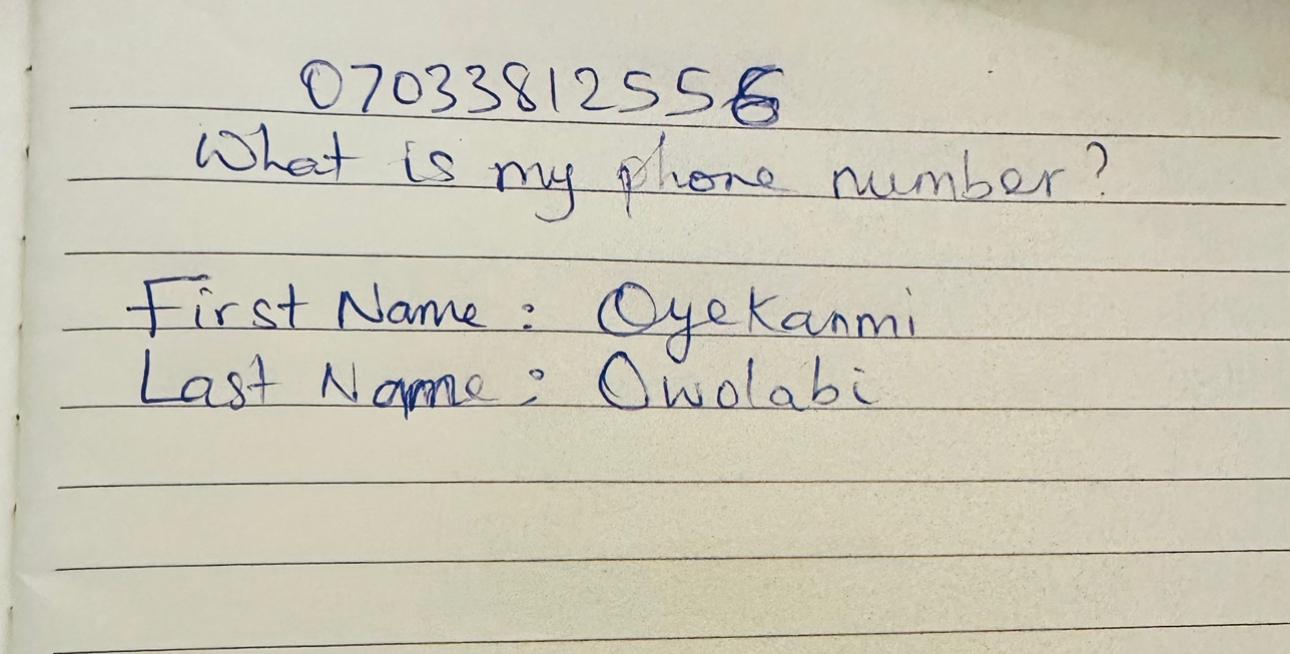 07033812556
What is my phone number?
First Name : Oyekanmi
Last Name : Owolabi